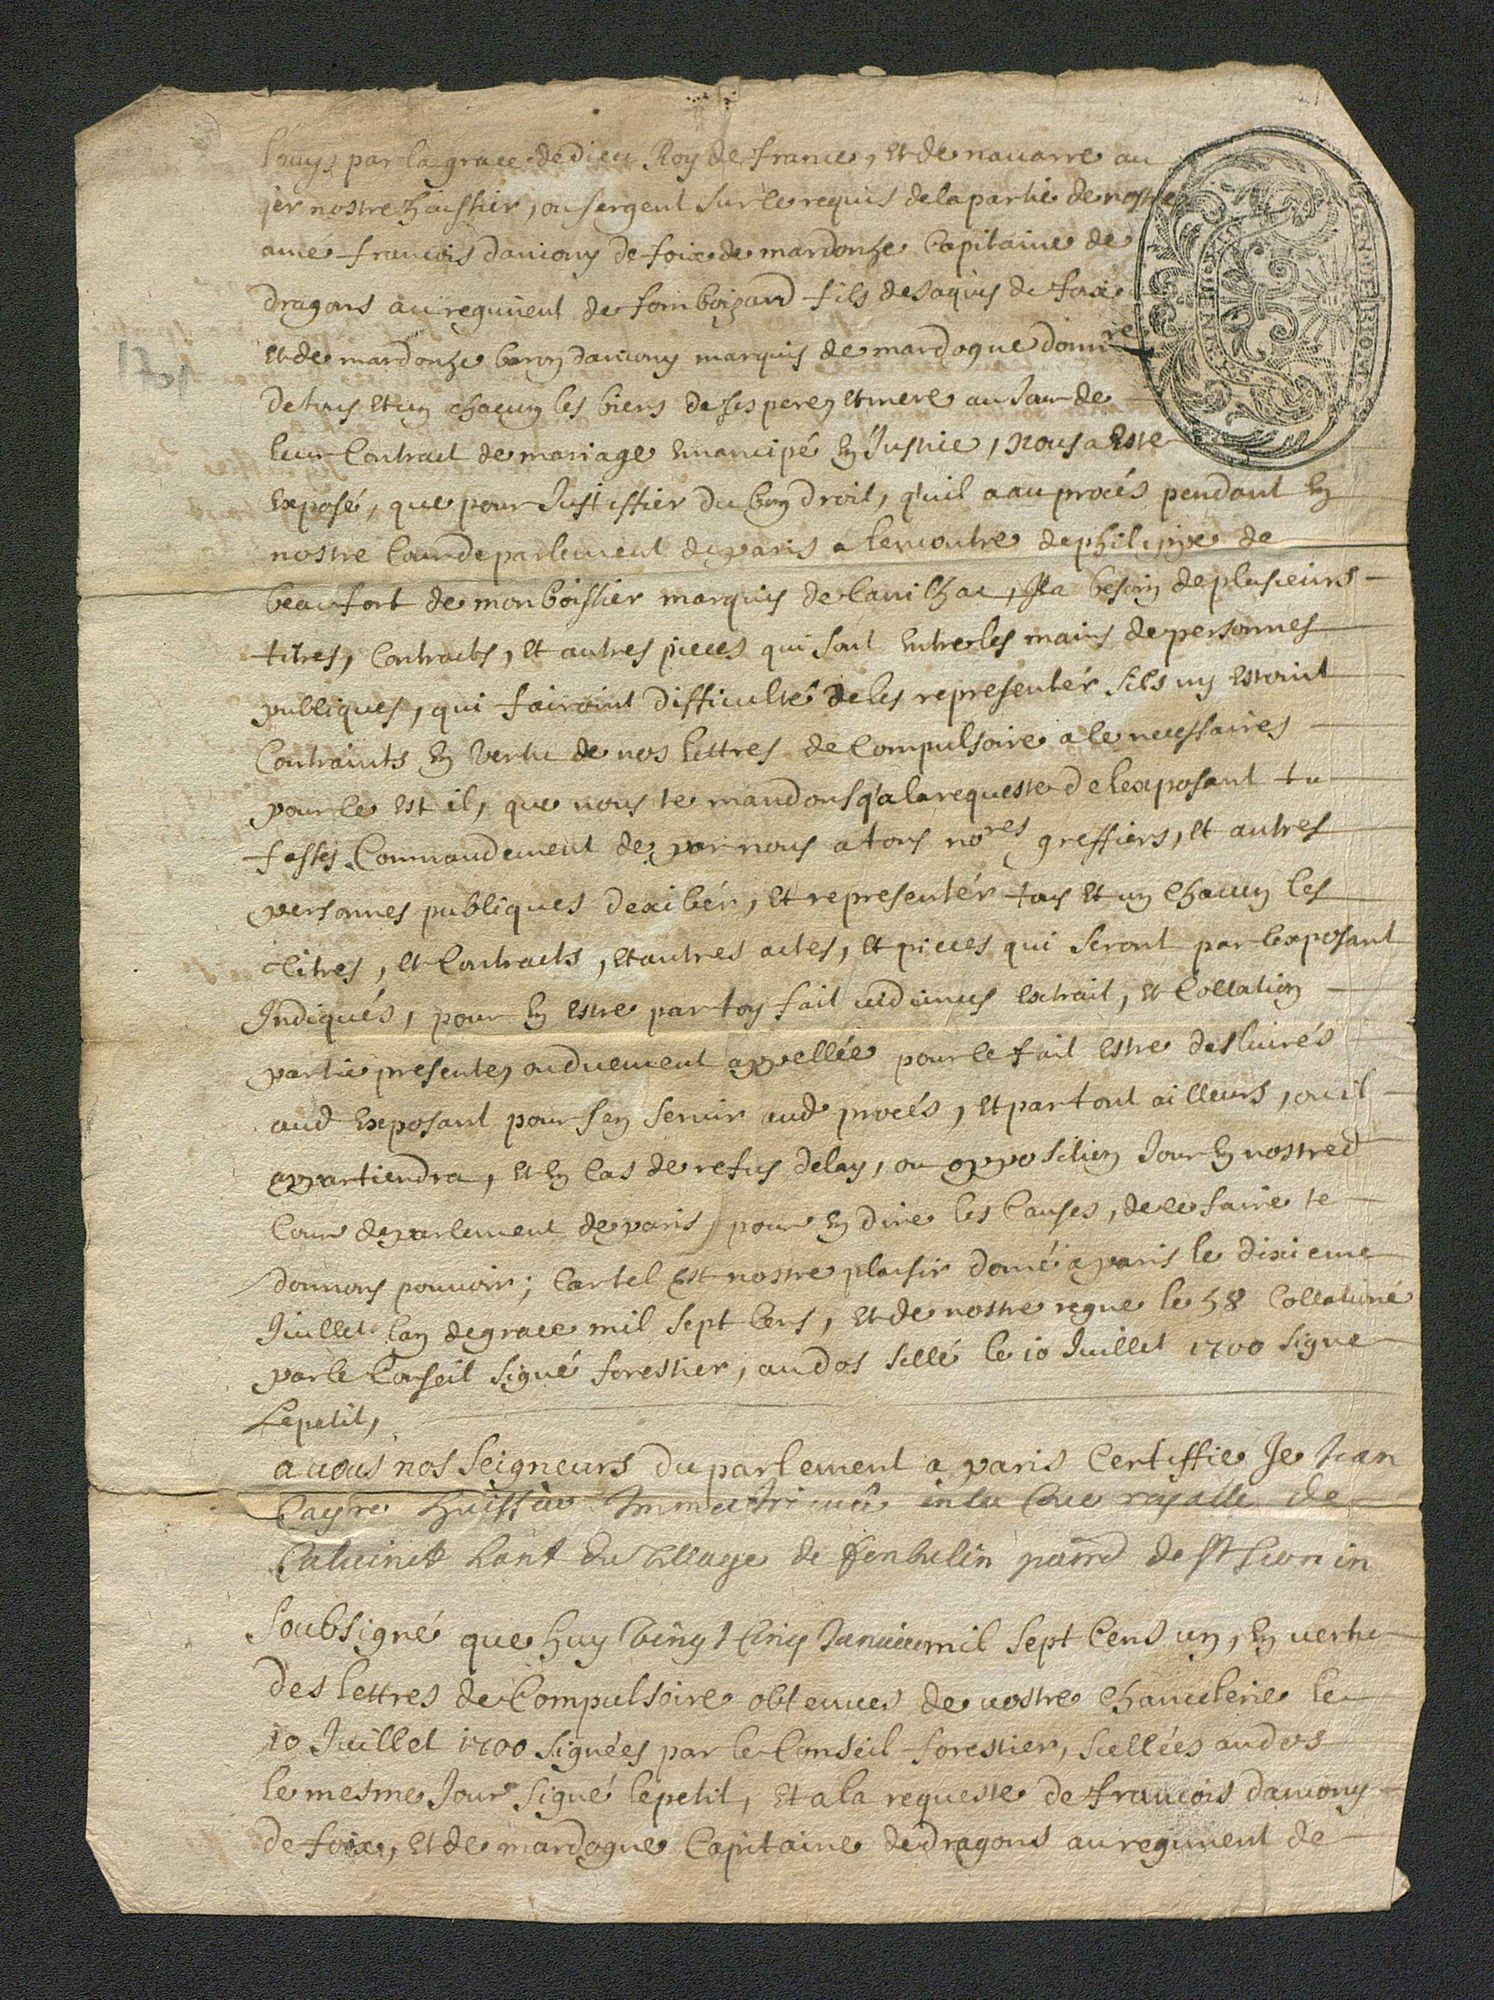 Louys par la grace de dieu Roy de france, et de nauarre au
jer nostre huissier, ou sergent sur ce requis de la partie de nostre
amé francois dauiony de foix de mardonhe Capitaine de
dragons au regiment de fomboizard fils de Jaques de foix
et de mardonhe baron dauiony marquis de mardogne donnre
de tous et un chacun les biens de ses pere, et mere au Jour de
leur Contract de mariage emancipé en Justice, nous a este
exposé, que pour Justiffier du bon droit, qu'il a au procés pendant en
nostre Cour de parlement de paris a lencontre de philippe de
beaufort de monboissier marquis de Canilhac, Il a besoin de plusieurs
titres, Contracts, et autres pieces qui sont entre les mains de personnes
publiques, qui fairoint difficulté de les representér sils ny estoint
Contraints en vertu de nos lettres de Compulsoire a ce necessaires
pour ce est il, que nous te mandons q'a la requeste de lexposant tu
fasses Commandement de par nous a tous nores greffiers, et autres
personnes publiques dexibér, et representér tous et un chacun les
titres, et Contracts, et autres actes, et pieces qui seront par lexposant
Indiqués, pour en estre par toy fait vidimus extrait, et Collation
partie presente, ou duement appellée pour ce fait estre desliurés
aud exposant pour sen seruir aud procés, et par tout ailleurs, ou il
appartiendra, et en cas de refus delay, ou opposition Jour en nostred
Cour de parlement de paris pour en dire les Causes, de ce faire te
donnons pouuoir; Car tel est nostre plaisir donné a paris le dixieme
Juillet lan de grace mil sept cens, et de nostre regne le 58 Collationé
par le Conseil signé forestier, au dos sellé le 10 Juillet 1700 signe
Lepetit,
a vous nos seigneurs du parlement a paris Certiffie Je Jean
Cayre huissier Immatriculé en la Cour royalle de
Caluinet hant du village de paroi de st
soubsigné que huy vingt cinq Januier mil sept cens un, en vertu
des lettres de Compulsoire obtenues de vostre chancelerie le
10 Juillet 1700 signées par le Conseil forestier, scellées au dos
le mesme Jour signé lepetit, et a la requeste de francois dauiony
de foix, et de mardogne Capitaine de dragons au regiment de
1701